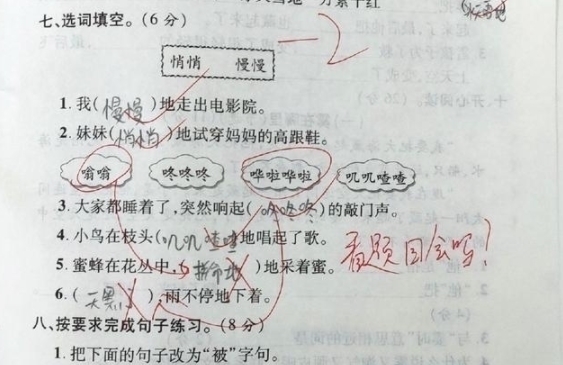 七、选词填空。(6分)
-2
悄悄 慢慢
1. 我(慢慢)地走出电影院。
2. 妹妹(悄悄)地试穿妈妈的高跟鞋。
嗡嗡 咚咚咚 哗啦哗啦 叽叽喳喳
3. 大家都睡着了,突然响起(咚咚咚)的敲门声。
4. 小鸟在枝头(叽叽喳喳)地唱起了歌。
看题目会吗?
5. 蜜蜂在花丛中(拼命地)地采着蜜。
6. (天黑),雨不停地下着。
八、按要求完成句子练习。(8分)
1. 把下面的句子改为“被”字句。